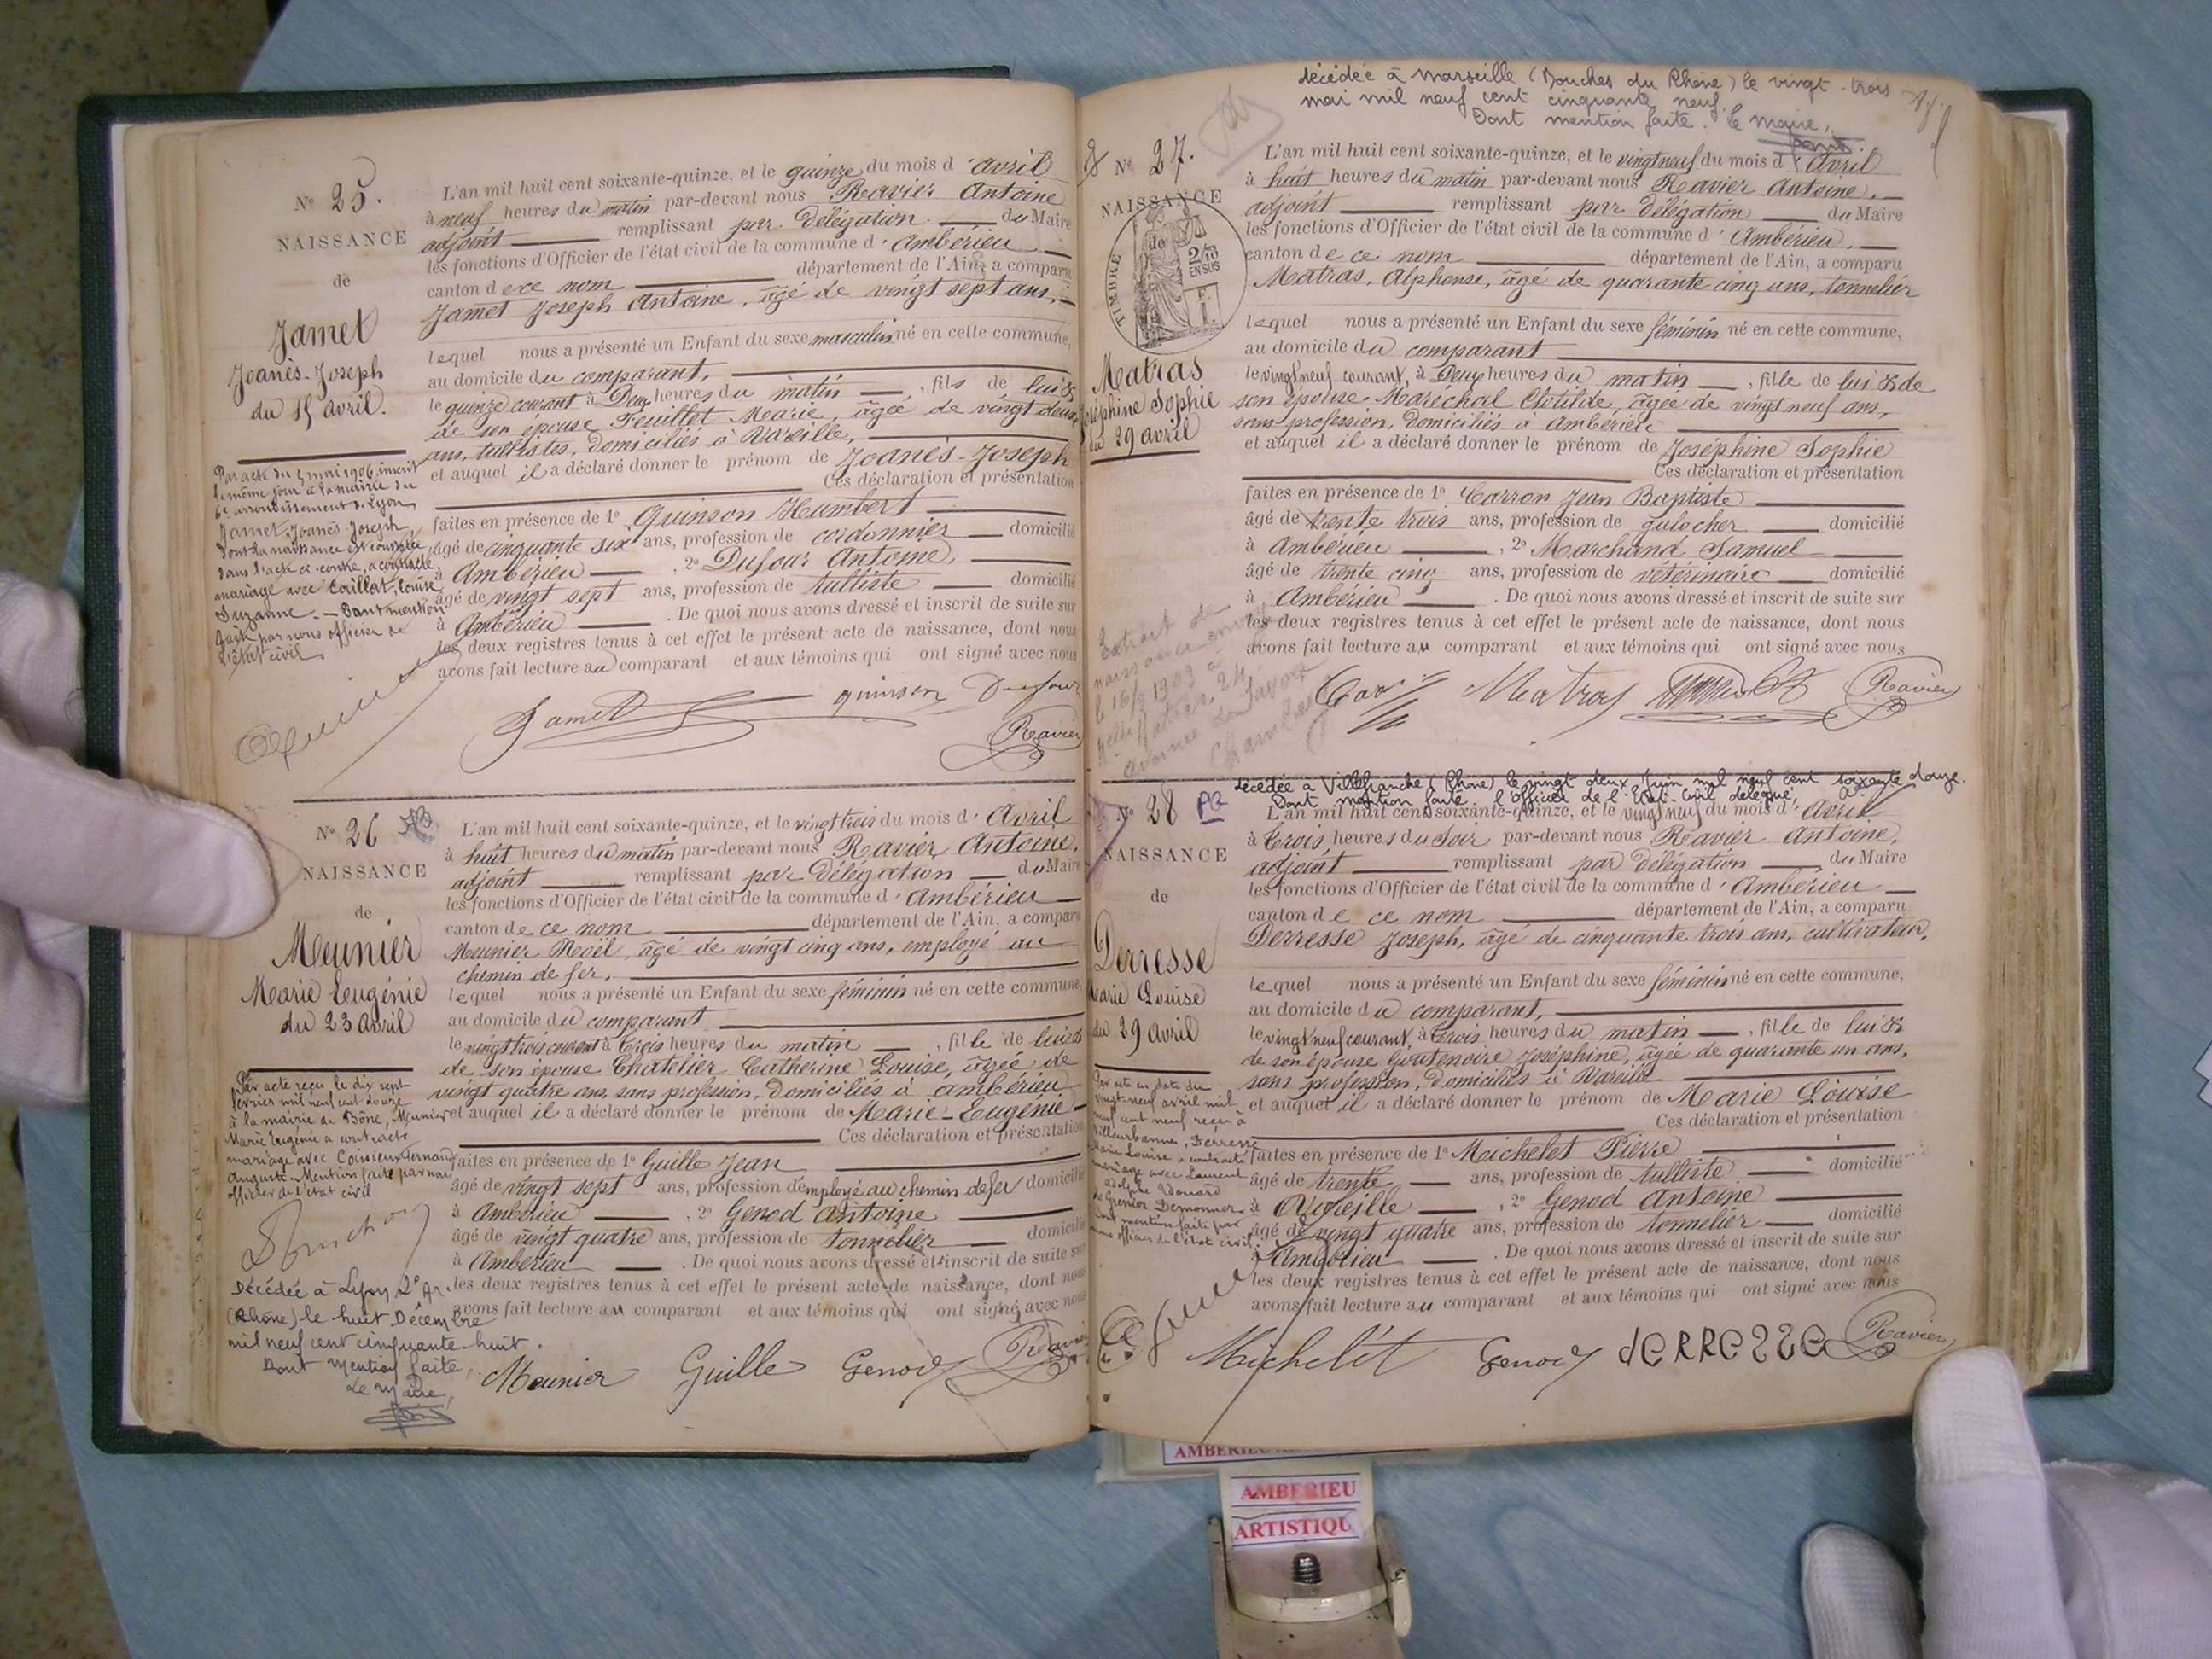 N° 25.
NAISSANCE
de
Jamet
Joanès-Joseph
du 15 avril.
L'an mil huit cent soixante-quinze, et le quinze du mois d'avril
à neuf heures du matin par-devant nous Ravier Antoine
adjoint remplissant par délégation du Maire
les fonctions d'Officier de l'état civil de la commune d'Ambérieu
canton de ce nom département de l'Ain, a comparu
Jamet Joseph Antoine, âgé de vingt sept ans,
lequel nous a présenté un Enfant du sexe masculin né en cette commune,
au domicile du comparant,
le quinze courant à Deux heures du matin, fils de lui &
de son épouse Feuillet Marie, âgée de vingt deux
ans, tullistes, domiciliés à Vareille,
et auquel il a déclaré donner le prénom de Joanès-Joseph
Ces déclaration et présentation
faites en présence de 1° Quinson Humbert
âgé de cinquante six ans, profession de cordonnier domicilié
à Ambérieu, 2° Dufour Antoine,
âgé de vingt sept ans, profession de tulliste domicilié
à Ambérieu. De quoi nous avons dressé et inscrit de suite sur
les deux registres tenus à cet effet le présent acte de naissance, dont nous
avons fait lecture au comparant et aux témoins qui ont signé avec nous
Par acte du 5 mai 1906, inscrit
le même jour à la mairie du
6e arrondissement de Lyon
Jamet, Joanès-Joseph,
dont la naissance est constatée
dans l'acte ci-contre, a contracté
mariage avec Caillat, Louise
Suzanne. - Dont mention
faite par nous officier de
l'état civil
Jamet quinson Dufour
Ravier
N° 26
NAISSANCE
de
Meunier
Marie Eugénie
du 23 avril
L'an mil huit cent soixante-quinze, et le vingt trois du mois d'Avril
à huit heures du matin par-devant nous Ravier Antoine,
adjoint remplissant par délégation du Maire
les fonctions d'Officier de l'état civil de la commune d'Ambérieu
canton de ce nom département de l'Ain, a comparu
Meunier Noël, âgé de vingt cinq ans, employé au
chemin de fer,
lequel nous a présenté un Enfant du sexe féminin né en cette commune,
au domicile du comparant
le vingt trois courant à trois heures du matin, fille de lui &
de son épouse Chatelier Catherine Louise, âgée de
vingt quatre ans, sans profession, domiciliés à ambérieu
et auquel il a déclaré donner le prénom de Marie-Eugénie
Ces déclaration et présentation
faites en présence de 1° Guille Jean
âgé de vingt sept ans, profession d'employé au chemin de fer domicilié
à Ambérieu, 2° Genod antoine
âgé de vingt quatre ans, profession de tonnelier domicilié
à Ambérieu. De quoi nous avons dressé et inscrit de suite sur
les deux registres tenus à cet effet le présent acte de naissance, dont nous
avons fait lecture au comparant et aux témoins qui ont signé avec nous
Par acte reçu le dix sept
février mil neuf cent douze
à la mairie de Bône, Meunier
Marie Eugénie a contracté
mariage avec Coissieux Fernand
Auguste. Mention faite par nous
officier de l'état civil
Décédée à Lyon 2e Ar.
(Rhône) le huit Décembre
mil neuf cent cinquante-huit.
Dont mention faite,
Le Maire,
Meunier Guille Genod Ravier
décédée à Marseille (Bouches du Rhône) le vingt-trois
mai mil neuf cent cinquante neuf.
Dont mention faite. Le Maire,
N° 27.
NAISSANCE
de
TIMBRE
2/10
EN SUS
Matras
Joséphine Sophie
du 29 avril
L'an mil huit cent soixante-quinze, et le vingt neuf du mois d'Avril
à huit heures du matin par-devant nous Ravier Antoine,
adjoint remplissant par délégation du Maire
les fonctions d'Officier de l'état civil de la commune d'Ambérieu,
canton de ce nom département de l'Ain, a comparu
Matras, Alphonse, âgé de quarante cinq ans, tonnelier
lequel nous a présenté un Enfant du sexe féminin né en cette commune,
au domicile du comparant
le vingt neuf courant, à Deux heures du matin, fille de lui & de
son épouse Maréchal Clotilde, âgée de vingt neuf ans,
sans profession, domiciliés à Ambérieu
et auquel il a déclaré donner le prénom de Joséphine Sophie
Ces déclaration et présentation
faites en présence de 1° Carron Jean Baptiste
âgé de trente trois ans, profession de galocher domicilié
à Ambérieu, 2° Marchand Samuel
âgé de trente cinq ans, profession de vétérinaire domicilié
à Ambérieu. De quoi nous avons dressé et inscrit de suite sur
les deux registres tenus à cet effet le présent acte de naissance, dont nous
avons fait lecture au comparant et aux témoins qui ont signé avec nous
Extrait de
naissance envoyé
le 16/ 1903 à
Melle Matras, 24
avenue
Chambéry
Matras Ravier
décédée à Villefranche (Rhône) le vingt deux Juin mil neuf cent soixante douze.
Dont mention faite. l'officier de l'Etat-Civil délégué,
N° 28
NAISSANCE
de
Derresse
Marie Louise
du 29 avril
L'an mil huit cent soixante-quinze, et le vingt neuf du mois d'avril
à trois heures du Soir par-devant nous Ravier Antoine,
adjoint remplissant par délégation du Maire
les fonctions d'Officier de l'état civil de la commune d'Ambérieu
canton de ce nom département de l'Ain, a comparu
Derresse Joseph, âgé de cinquante trois ans, cultivateur,
lequel nous a présenté un Enfant du sexe féminin né en cette commune,
au domicile du comparant,
le vingt neuf courant, à trois heures du matin, fille de lui &
de son épouse Goutenoire Joséphine, âgée de quarante un ans,
sans profession, domiciliés à Vareille
et auquel il a déclaré donner le prénom de Marie Louise
Ces déclaration et présentation
faites en présence de 1° Michelet Pierre
âgé de trente ans, profession de tulliste domicilié
à Vareille, 2° Genod Antoine
âgé de vingt quatre ans, profession de tonnelier domicilié
à Ambérieu. De quoi nous avons dressé et inscrit de suite sur
les deux registres tenus à cet effet le présent acte de naissance, dont nous
avons fait lecture au comparant et aux témoins qui ont signé avec nous
Par acte en date du
vingt-neuf avril mil
neuf cent neuf reçu à
Villeurbanne, Derresse
Marie Louise a contracté
mariage avec Laurent
adolphe Edouard
dont mention faite par
nous officier de l'état civil
Michelet Genod dERRESSE Ravier
AMBERIEU
AMBERIEU
ARTISTIQU